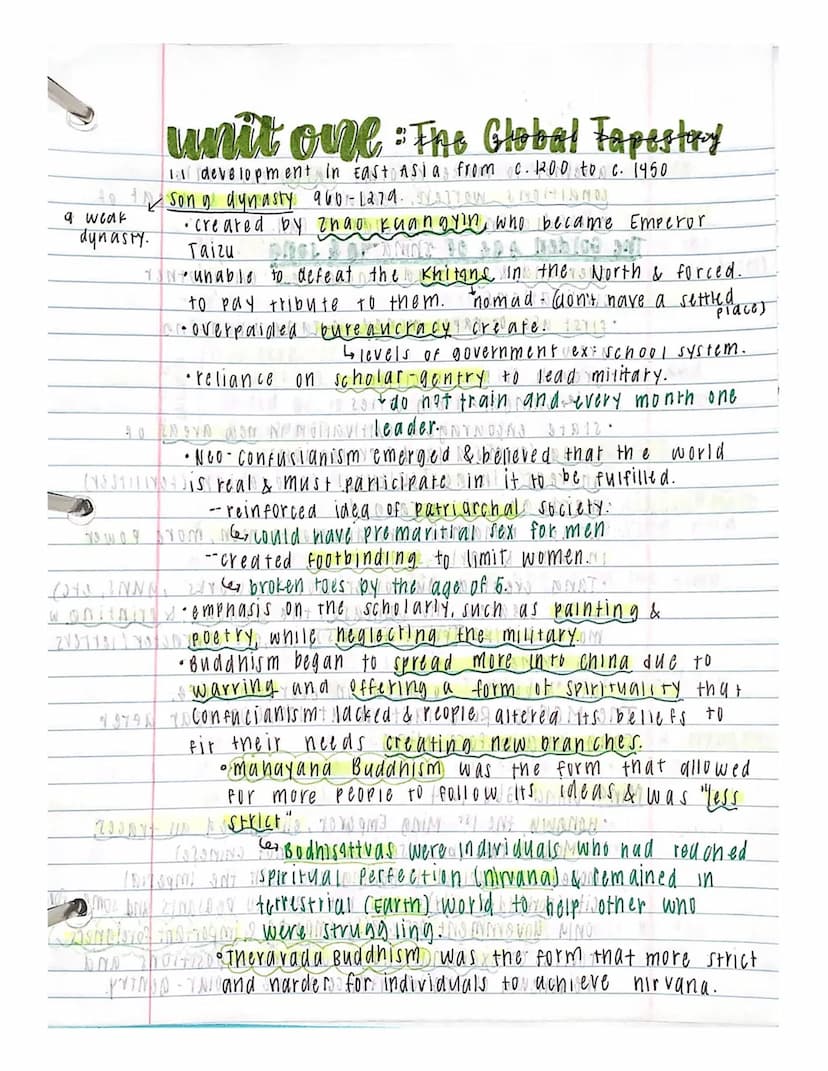 unit one : The Global Tapestry
1.1 development in East Asia from c. 1200 to c. 1450
Song dynasty 960-1279.
a weak
dynasty.
• created by Zhao Kuangyin, who became Emperor
Taizu
• unable to defeat the Khitans in the North & forced.
to pay tribute to them. nomad - (don't have a settled
place)
• overpaided bureaucracy create.
↳ levels of government ex: school system.
• reliance on scholar-gentry to lead military.
do not train and every month one
leader.
• Neo-Confusianism emerged & believed that the world
is real & must participate in it to be fulfilled.
- reinforced idea of patriarchal society.
↳ could have premaritial sex for men
- created footbinding to limit women.
↳ broken toes by the age of 5.
• emphasis on the scholarly, such as painting &
poetry, while neglecting the military.
• Buddhism began to spread more into China due to
warring and offering a form of spirituality that
Confucianism lacked & people altered its beliefs to
fit their needs creating new branches.
• Mahayana Buddhism was the form that allowed
for more people to follow its ideas & was "less
strict"
↳ Bodhisattvas were individuals who had reached
spiritual perfection (nirvana) & remained in
terrestrial (Earth) world to help other who
were struggling.
• Theravada Buddhism was the form that more strict
and harder for individuals to achieve nirvana.